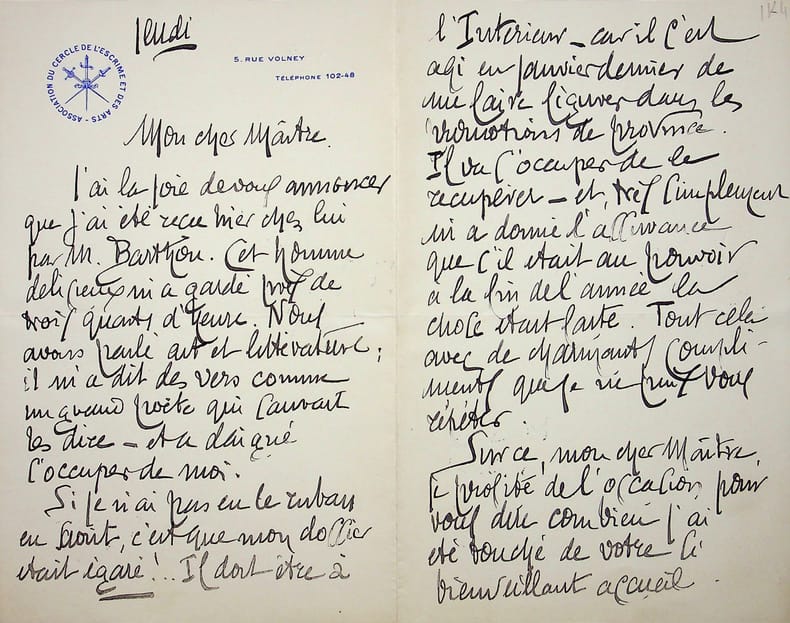 Jeudi
ASSOCIATION DU CERCLE DE L'ESCRIME ET DES ARTS
5, RUE VOLNEY
TÉLÉPHONE 102-48
Mon cher Maître.
J'ai la joie de vous annoncer
que j'ai été reçu hier chez lui
par M. Barthou. Cet homme
délicieux m'a gardé près de
trois quarts d'heure. Nous
avons parlé art et littérature ;
il m'a dit des vers comme
un grand poète qui saurait
les dire – et a daigné
s'occuper de moi.
Si je n'ai pas eu le ruban
en Août, c'est que mon dossier
était égaré !.. Il doit être à
l'Intérieur – car il s'est
agi en janvier dernier de
me faire figurer dans les
promotions de province.
Il va s'occuper de le
récupérer – et, très simplement
m'a donné l'assurance
que s'il était au pouvoir
à la fin de l'année la
chose était faite. Tout cela
avec de charmants compli-
ments que je ne puis vous
répéter.
Sur ce, mon cher Maître,
je profite de l'occasion pour
vous dire combien j'ai
été touché de votre si
bienveillant accueil.